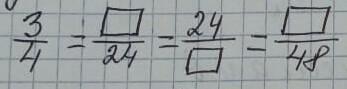 3/4 = □/24 = 24/□ = □/48